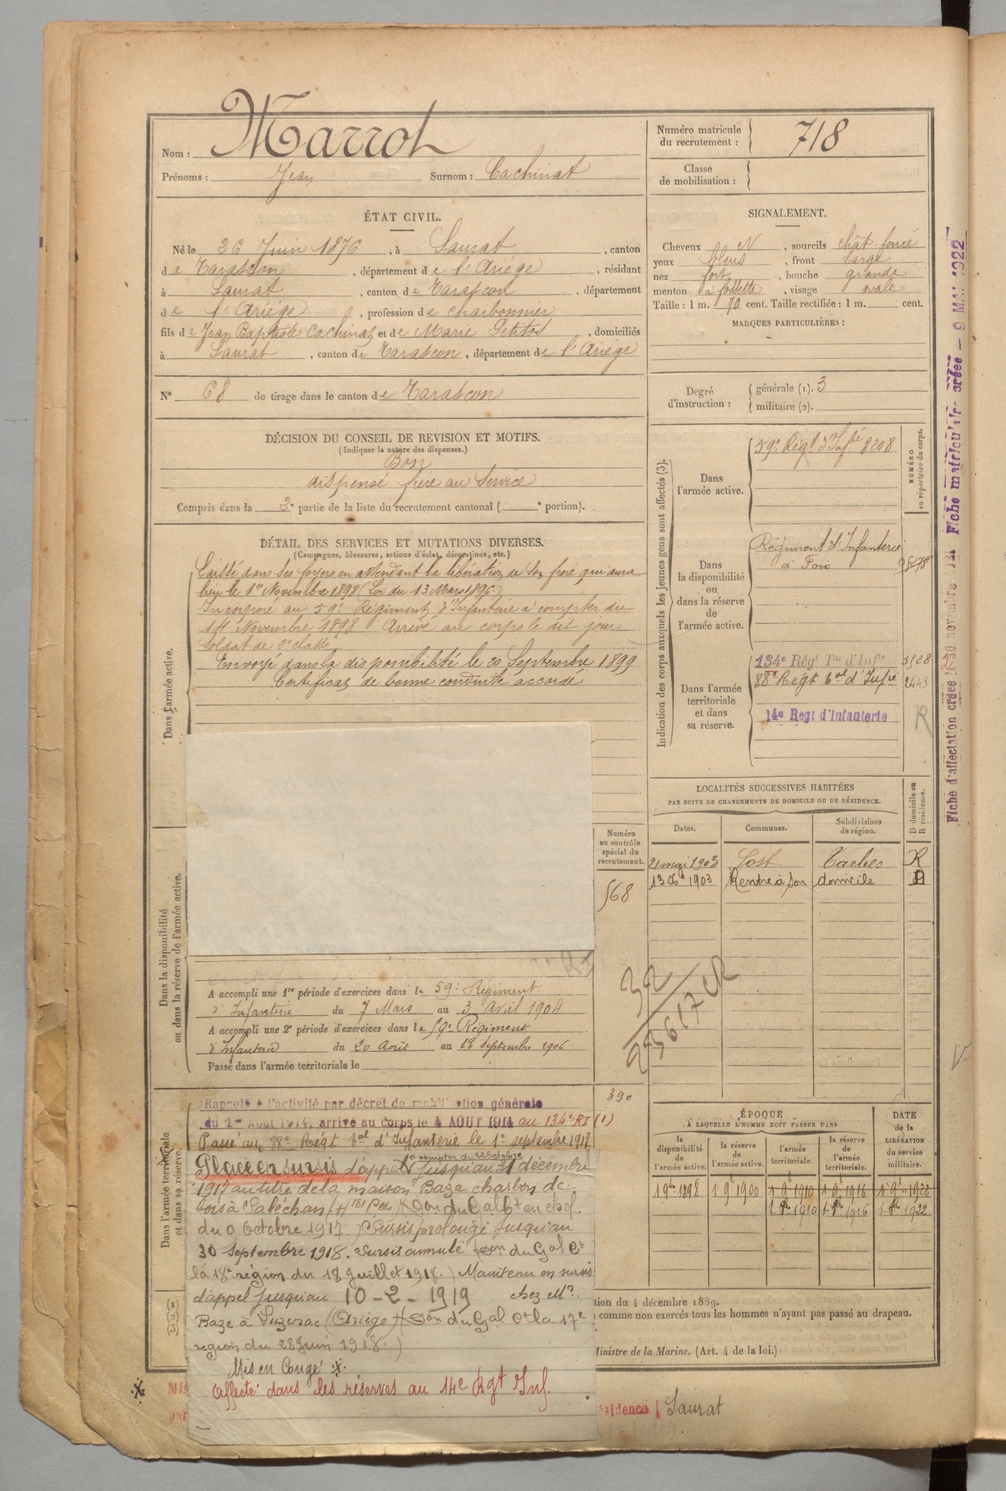 Nom : Marrot
Prénoms : Jean Surnom : Cachinat
ÉTAT CIVIL.
Né le 26 Juin 1876, à Saurat, canton
de Tarascon, département de l'Ariége, résidant
à Saurat, canton de Tarascon, département
de l'Ariége, profession de charbonnier
fils de Jean Baptiste Cachinat et de Marie Petitot, domiciliés
à Saurat, canton de Tarascon, département de l'Ariége
N° 68 de tirage dans le canton de Tarascon
DÉCISION DU CONSEIL DE REVISION ET MOTIFS.
(Indiquer la nature des dispenses.)
Bon
dispensé frère au Service
Compris dans la 2e partie de la liste du recrutement cantonal ( e portion).
DÉTAIL DES SERVICES ET MUTATIONS DIVERSES.
(Campagnes, blessures, actions d'éclat, décorations, etc.)
Dans l'armée active.
Laissé dans ses foyers en attendant la libération de son frère qui aura
lieu le 1er Novembre 1898 (Loi du 13 Mars 1896)
Incorporé au 59e Régiment d'Infanterie à compter du
14 Novembre 1898 Arrivé au corps le dit jour
Soldat de 2e classe
Envoyé dans la disponibilité le 20 Septembre 1899
Certificat de bonne conduite accordé
Dans la disponibilité
ou dans la réserve de l'armée active.
Numéro
au contrôle
spécial du
recrutement.
568
A accompli une 1re période d'exercices dans le 59e Régiment
d'Infanterie du 7 Mars au 3 Avril 1904
A accompli une 2e période d'exercices dans le 59e Régiment
d'Infanterie du 20 Août au 16 septembre 1906
Passé dans l'armée territoriale le
390
Dans l'armée territoriale
et dans sa réserve.
Rappelé à l'activité par décret de mobilisation générale
du 1er Août 1914, arrivé au corps le 4 AOUT 1914 au 134e RI (1)
Passé au 88e Regt tal d'Infanterie le 1er septembre 1917
Placé en sursis d'appel à compter du 23 octobre jusqu'au 31 décembre
1917 au titre de la maison Baze charbon de
bois à Saléchan (Htes Pées) (Don du Gal Ct en chef
du 9 Octobre 1917) Sursis prolongé jusqu'au
30 Septembre 1918. Sursis annulé (Don du Gal Ct
la 18e région du 18 juillet 1918.) Maintenu en sursis
d'appel jusqu'au 10-2-1919 chez Mr
Baze à Luzenac (Ariège) (Don du Gal Ct la 17e
région du 28 Juin 1918.)
Mis en Congé
Affecté dans les réserves au 14e Rgt Inf.
Numéro matricule
du recrutement : 718
Classe
de mobilisation :
SIGNALEMENT.
Cheveux N, sourcils chât foncé
yeux bleus, front large
nez fort, bouche grande
menton à fossette, visage ovale
Taille : 1 m. 70 cent. Taille rectifiée : 1 m. cent.
MARQUES PARTICULIÈRES :
Degré
d'instruction :
générale (1). 3
militaire (2).
Indication des corps auxquels les jeunes gens sont affectés (3).
NUMÉRO
au répertoire du corps.
Dans
l'armée active.
59e Régt d'Infrie 8208
Dans
la disponibilité
ou
dans la réserve
de
l'armée active.
Régiment d'Infanterie
à Foix
Dans l'armée
territoriale
et dans
sa réserve.
134e Régt Tal d'Infie
88e Regt tal d'Infie
14e Regt d'Infanterie
R
LOCALITÉS SUCCESSIVES HABITÉES
PAR SUITE DE CHANGEMENTS DE DOMICILE OU DE RÉSIDENCE.
Dates. Communes. Subdivisions
de région.
D domicile ou
R résidence.
21 mai 1903 Sost Tarbes R
13 Xbre 1903 Rentré à son domicile D
ÉPOQUE
À LAQUELLE L'HOMME DOIT PASSER DANS
DATE
de la
LIBÉRATION
du service
militaire.
la
disponibilité
de
l'armée active.
la réserve
de
l'armée active.
l'armée
territoriale.
la réserve
de
l'armée
territoriale.
1 9bre 1898 1 9 1900 1 9 1910 1 9 1916 1 9 1922
1 8bre 1910 1 8bre 1916 1 8bre 1922
tion du 4 décembre 1889.
comme non exercés tous les hommes n'ayant pas passé au drapeau.
Ministre de la Marine. (Art. 4 de la loi.)
Mis
par
résidence Saurat
Fiche matriculaire créée - 9 MAI 1922